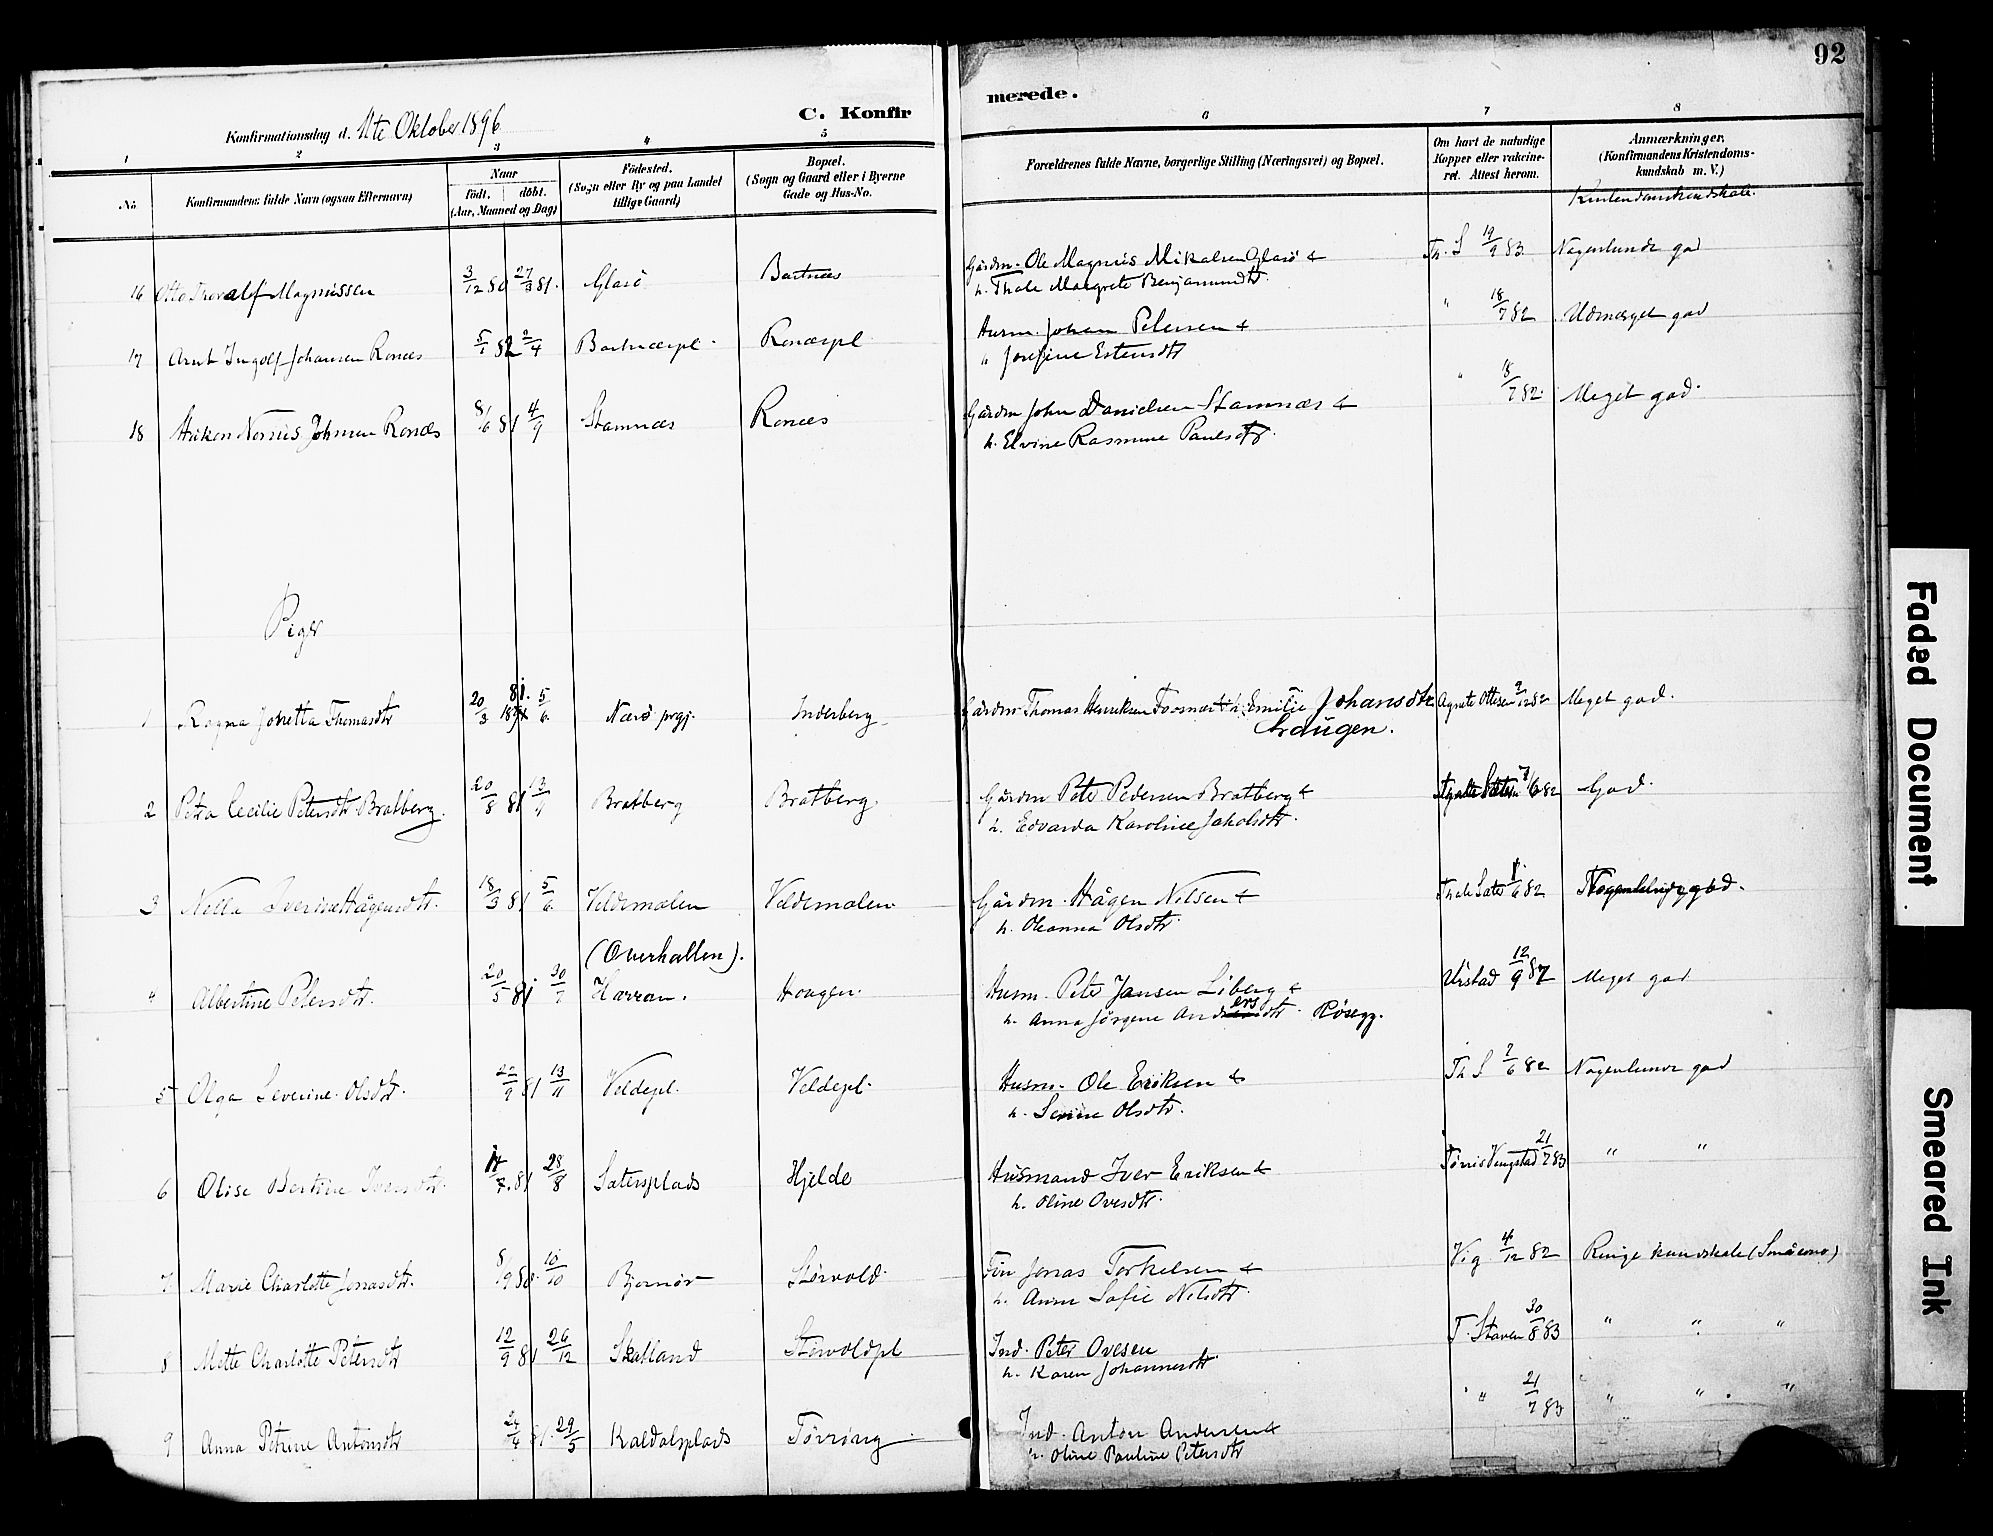 92
Konfirmationsdag d. 11te Oktober 1896
C. Konfirmerede.
1 2 3 4 5 6 7 8
No.
Konfirmandens fulde Navn (ogsaa Efternavn)
Naar
födt. döbt.
(Aar, Maaned og Dag)
Födested.
(Sogn eller By og paa Landet
tillige Gaard)
Bopæl.
(Sogn og Gaard eller i Byerne
Gade og Hus-No.
Forældrenes fulde Navne, borgerlige Stilling (Næringsvei) og Bopæl.
Om havt de naturlige
Kopper eller vakcine-
ret. Attest herom.
Anmærkninger.
(Konfirmandens Kristendoms-
kundskab m. V.)
Kristendomskundskab.
16 Otto Thoralf Magnussen 3/12 80 27/3 81. Glasö Bartnæs Gårdm. Ole Magnus Mikalsen Glasö &
h. Thale Margrete Benjaminsdtr. Th. S 19/9 83 Nogenlunde god
17 Arnt Ingolf Johansen Ronæs 5/1 82 2/4 Bartnæspl. Ronæspl. Husm. Johan Petersen &
h. Josefine Estensdtr " 18/7 82 Udmærget god
18 Håkon Nornus Johnsen Ronæs 8/6 81 4/9 Stamnæs Ronæs Gårdm John Danielsen Stamnæs &
h. Elvine Rasmine Paulsdtr. " 18/7 82. Meget god.
Piger
1 Ragna Jonetta Thomasdtr 20/3 81. 5/6. Nærö prgj. Inderberg Gårdm Thomas Henriksen Fosnæs & h. Emilie Johansdtr
Straugen. Agnete Ottesen 9/12 82 Meget god.
2 Petra Cecilie Petersdtr Bratberg. 20/8 81 13/11 Bratberg Bratberg. Gårdm Peter Pedersen Bratberg &
h. Edvarda Karoline Jakobsdtr. 7/6 82 God.
3 Nella Iverine Hågensdtr. 18/3 81 5/6. Veldemalen Veldemalen Gårdm. Hågen Nilsen &
h. Oleanna Olsdtr. Thale Sæter 1/6 82 Nogenlunde god.
(Overhallen).
4 Albertine Petersdtr. 20/5 81 30/7 Harran. Haagen. Husm. Peter Jansen Liberg &
h. Anna Jörgine Andersdtr. Rösegg. Vristad 12/9 87 Meget god
5 Olga Severine Olsdtr. 22/9 81 13/11 Veldepl. Veldepl. Husm. Ole Eriksen &
h. Serine Olsdtr. Th S 7/6 82 Nogenlunde god
6 Olise Bertine Iversdtr. 17/7. 81 28/8 Sætersplads Hjelde Husmand Iver Eriksen &
h. Oline Ovesdtr. Törris Vengstad 21/7 83 " "
7 Marie Charlotte Jonasdtr. 8/9 80. 10/10 Bjørnör Størvold. Fön Jonas Torkelsen &
h. Anne Sofie Nilsdtr. Vig 4/12 82 Ringe kundskab (Småsono)
8 Mette Charlotte Petersdtr 12/9 81 26/12 Skatland Størvoldpl Ind. Peter Ovesen
h. Karen Johannesdtr. T. Staven 30/8 83 " " "
9 Anna Petrine Antonsdtr 24/4 81. 29/5 Kaldalsplads Tørring Ind. Anton Andersen &
h. Oline Pauline Petersdtr " 21/7 83 " " "
Faded Document
Smeared Ink